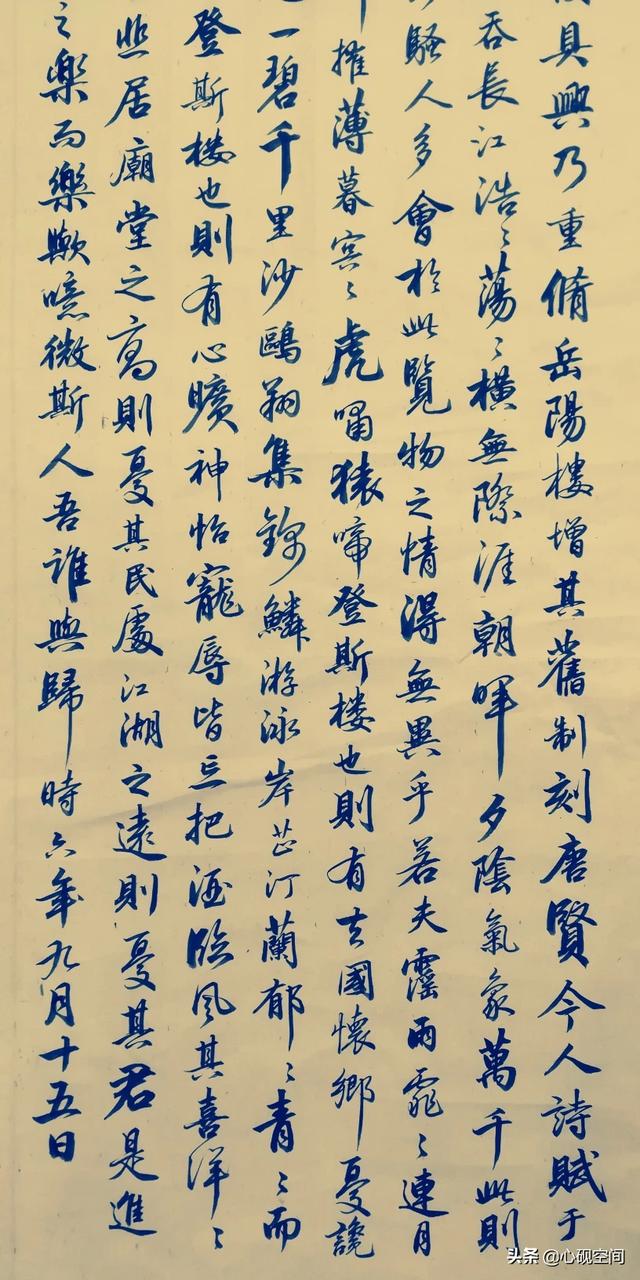 具興乃重脩岳陽樓增其舊制刻唐賢今人詩賦于
吞長江浩〻蕩〻橫無際涯朝暉夕陰氣象萬千此則
騷人多會於此覽物之情得無異乎若夫霪雨霏〻連月
摧薄暮冥〻虎嘯猿啼登斯楼也則有去國懷鄉憂讒
一碧千里沙鷗翔集錦鱗游泳岸芷汀蘭郁〻青〻而
登斯楼也則有心曠神怡寵辱皆忘把酒臨風其喜洋〻
悲居廟堂之高則憂其民處江湖之遠則憂其君是進
之樂而樂歟噫微斯人吾誰與歸時六年九月十五日
头条 @心砚空间